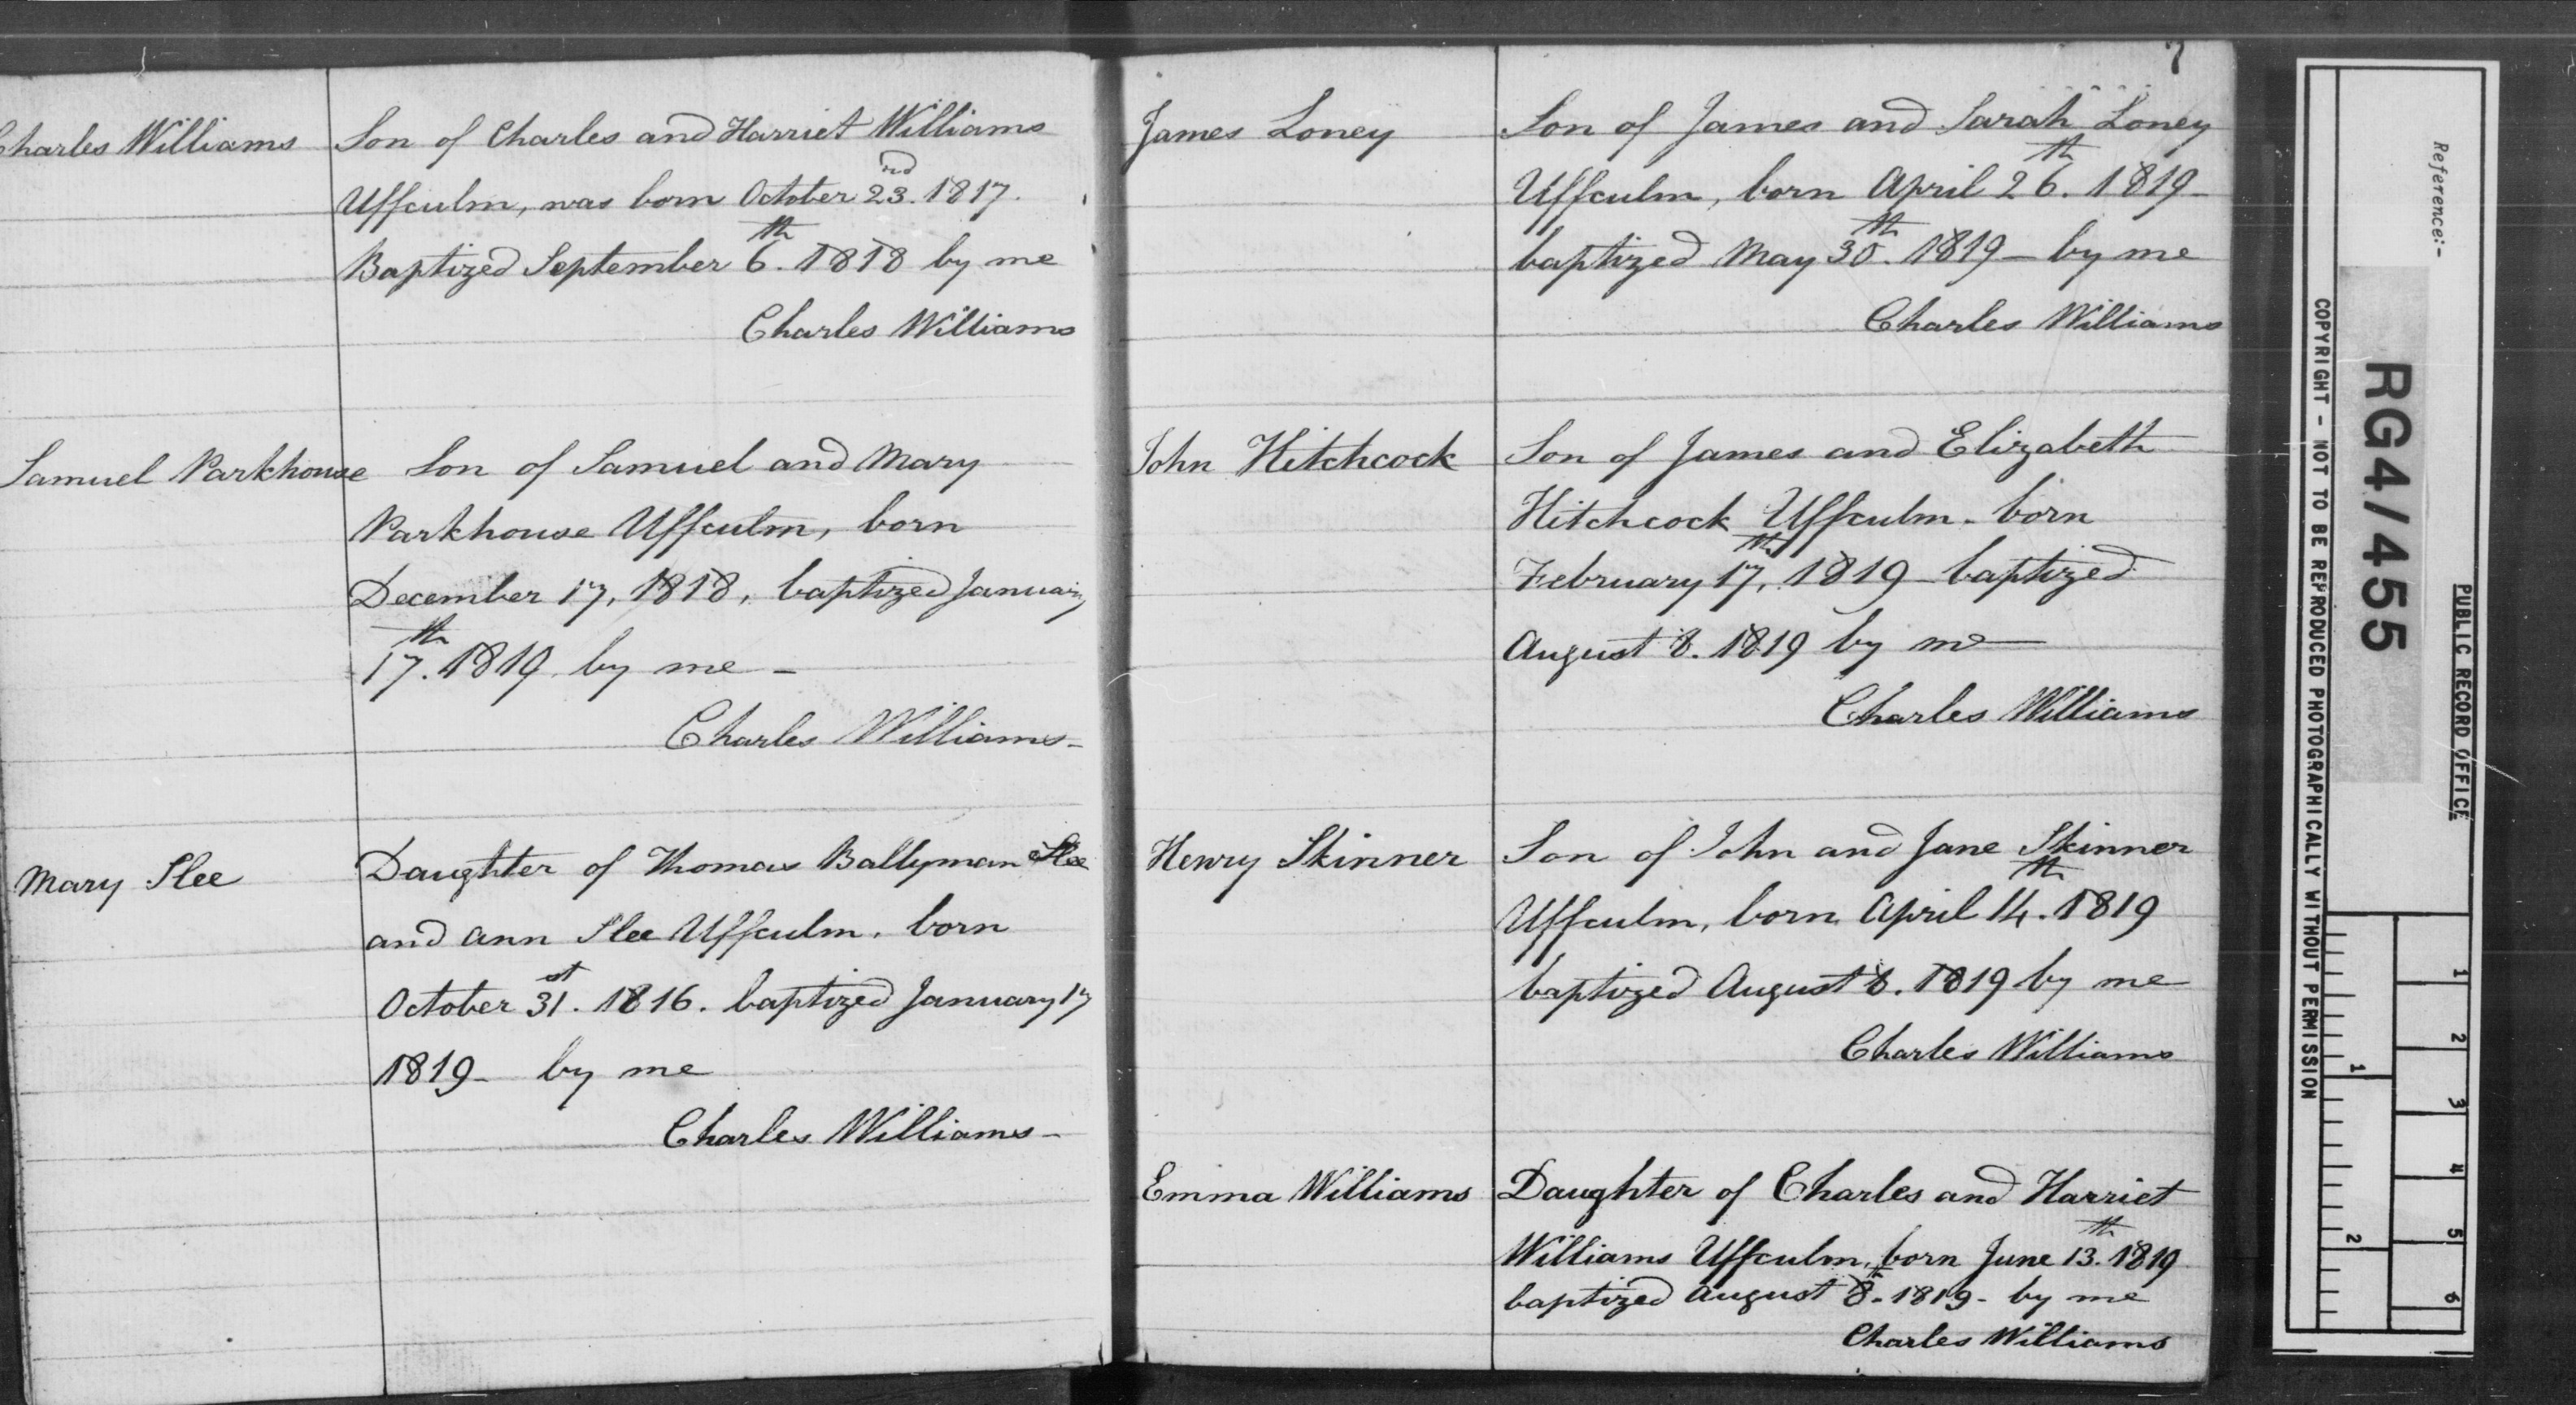 Charles Williams
Son of Charles and Harriet Williams
Uffculm, was born October 23rd. 1817.
Baptized September 6th. 1818 by me
Charles Williams
Samuel Parkhouse
Son of Samuel and Mary
Parkhouse Uffculm, born
December 17, 1818, baptized January
17th. 1819 by me -
Charles Williams-
Mary Slee
Daughter of Thomas Ballyman Slee
and Ann Slee Uffculm. born
October 31st. 1816. baptized January 17
1819- by me
Charles Williams-
7
James Loney
Son of James and Sarah Loney
Uffculm, born April 26th. 1819-
baptized May 30th. 1819- by me
Charles Williams
John Hitchcock
Son of James and Elizabeth
Hitchcock Uffculm- born
February 17th, 1819- baptized
August 8. 1819 by me
Charles Williams
Henry Skinner
Son of John and Jane Skinner
Uffculm, born April 14th. 1819
baptized August 8. 1819 by me
Charles Williams
Emma Williams
Daughter of Charles and Harriet
Williams Uffculm, born June 13th. 1819
baptized August 8th. 1819- by me
Charles Williams
PUBLIC RECORD OFFICE
Reference:-
RG4/455
COPYRIGHT - NOT TO BE REPRODUCED PHOTOGRAPHICALLY WITHOUT PERMISSION
1 2 3 4 5 6
1 2